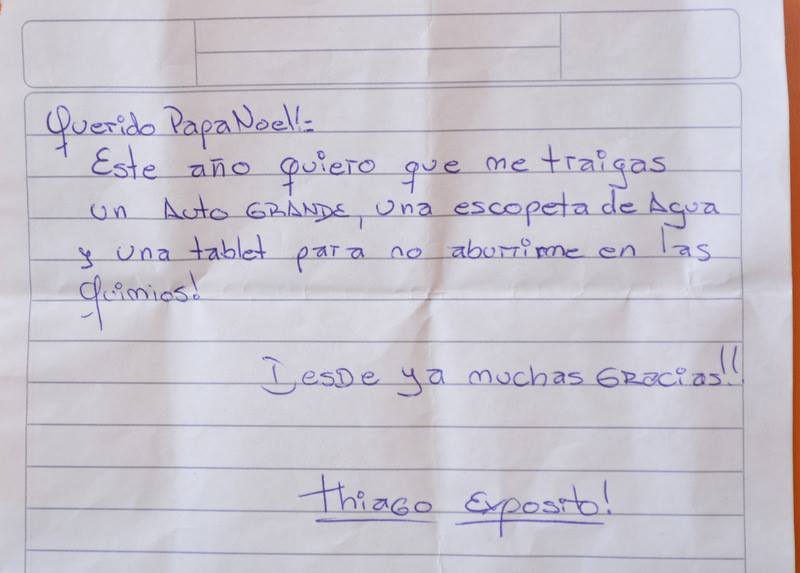 Querido Papa Noel!:
Este año quiero que me traigas
un Auto GRANDE, una escopeta de Agua
y una tablet para no aburrirme en las
Quimios!
Desde ya muchas Gracias!!
Thiago Exposito!